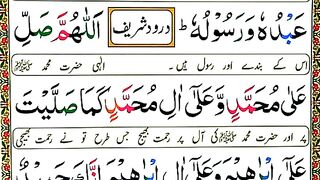 عَبْدُهٗ وَرَسُوْلُهٗ ؕ درود شریف اَللّٰهُمَّ صَلِّ
اس کے بندے اور رسول ہیں۔ الٰہی حضرت محمد ﷺ
عَلٰی مُحَمَّدٍ وَّعَلٰٓی اٰلِ مُحَمَّدٍ كَمَا صَلَّیْتَ
پر اور حضرت محمد ﷺ کی آل پر رحمت بھیج جس طرح تو نے رحمت بھیجی
عَلٰٓی اِبْرٰهِیْمَ وَعَلٰٓی اٰلِ اِبْرٰهِیْمَ اِنَّكَ حَمِیْدٌ